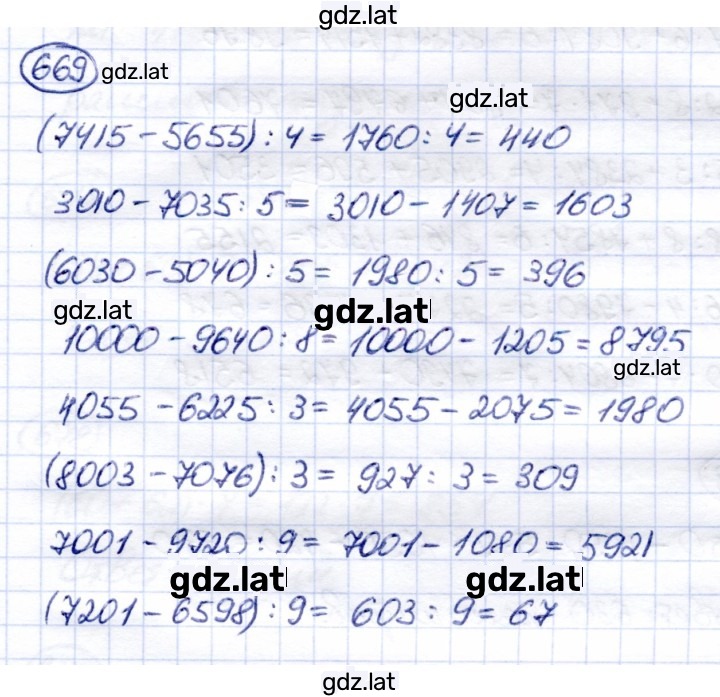 gdz.lat
669 gdz.lat
gdz.lat
(7415 - 5655) : 4 = 1760 : 4 = 440
3010 - 7035 : 5 = 3010 - 1407 = 1603
(6030 - 5040) : 5 = 1980 : 5 = 396
gdz.lat gdz.lat
10000 - 9640 : 8 = 10000 - 1205 = 8795
gdz.lat
4055 - 6225 : 3 = 4055 - 2075 = 1980
(8003 - 7076) : 3 = 927 : 3 = 309
7001 - 9720 : 9 = 7001 - 1080 = 5921
gdz.lat gdz.lat
(7201 - 6598) : 9 = 603 : 9 = 67
gdz.lat